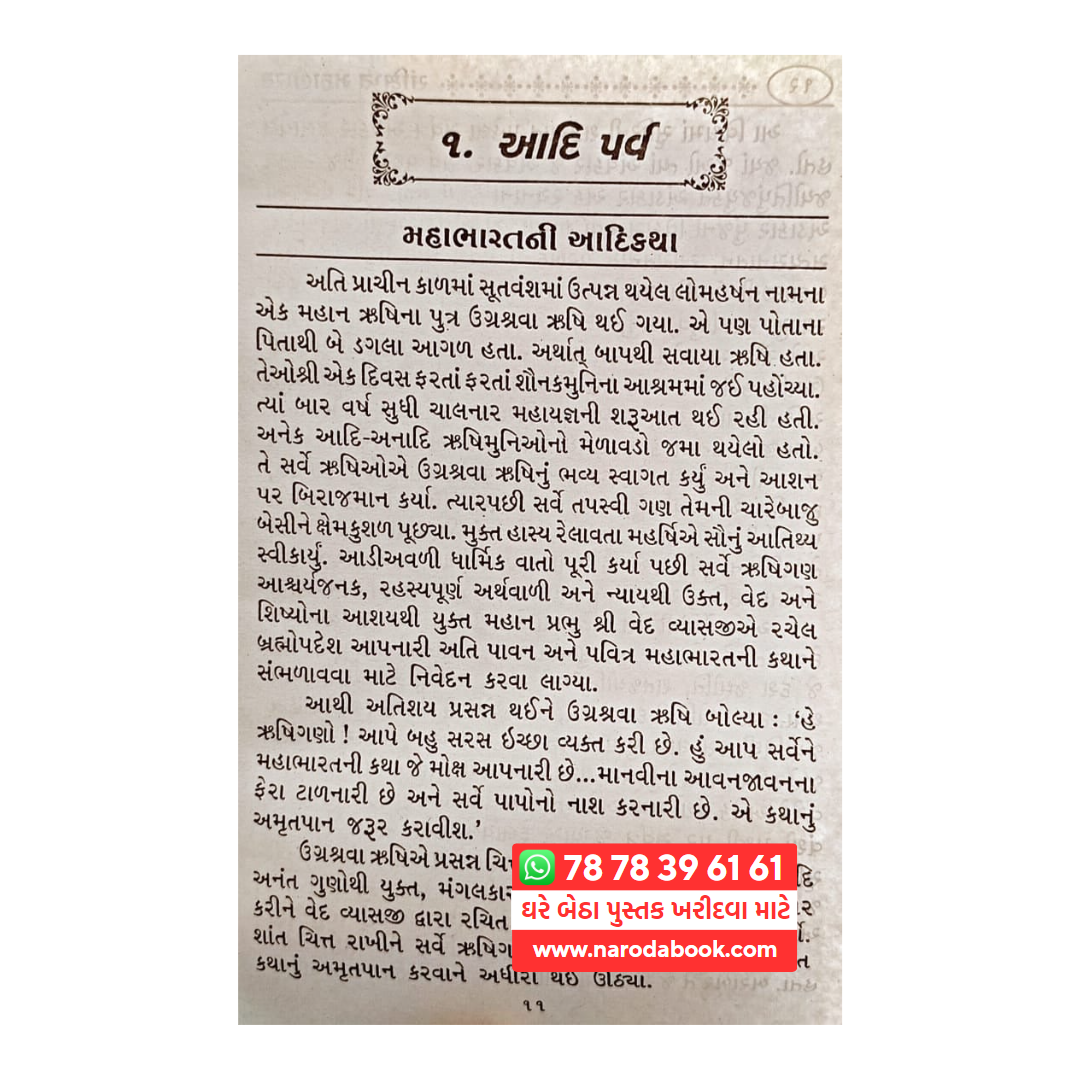 ૧. આદિ પર્વ
મહાભારતની આદિકથા
અતિ પ્રાચીન કાળમાં સૂતવંશમાં ઉત્પન્ન થયેલ લોમહર્ષન નામના
એક મહાન ઋષિના પુત્ર ઉગ્રશ્રવા ઋષિ થઈ ગયા. એ પણ પોતાના
પિતાથી બે ડગલા આગળ હતા. અર્થાત્ બાપથી સવાયા ઋષિ હતા.
તેઓશ્રી એક દિવસ ફરતાં ફરતાં શૌનકમુનિના આશ્રમમાં જઈ પહોંચ્યા.
ત્યાં બાર વર્ષ સુધી ચાલનાર મહાયજ્ઞની શરૂઆત થઈ રહી હતી.
અનેક આદિ-અનાદિ ઋષિમુનિઓનો મેળાવડો જમા થયેલો હતો.
તે સર્વે ઋષિઓએ ઉગ્રશ્રવા ઋષિનું ભવ્ય સ્વાગત કર્યું અને આશન
પર બિરાજમાન કર્યા. ત્યારપછી સર્વે તપસ્વી ગણ તેમની ચારેબાજુ
બેસીને ક્ષેમકુશળ પૂછ્યા. મુક્ત હાસ્ય રેલાવતા મહર્ષિએ સૌનું આતિથ્ય
સ્વીકાર્યું. આડીઅવળી ધાર્મિક વાતો પૂરી કર્યા પછી સર્વે ઋષિગણ
આશ્ચર્યજનક, રહસ્યપૂર્ણ અર્થવાળી અને ન્યાયથી ઉક્ત, વેદ અને
શિષ્યોના આશયથી યુક્ત મહાન પ્રભુ શ્રી વેદ વ્યાસજીએ રચેલ
બ્રહ્મોપદેશ આપનારી અતિ પાવન અને પવિત્ર મહાભારતની કથાને
સંભળાવવા માટે નિવેદન કરવા લાગ્યા.
આથી અતિશય પ્રસન્ન થઈને ઉગ્રશ્રવા ઋષિ બોલ્યા : ‘હે
ઋષિગણો ! આપે બહુ સરસ ઇચ્છા વ્યક્ત કરી છે. હું આપ સર્વેને
મહાભારતની કથા જે મોક્ષ આપનારી છે...માનવીના આવનજાવનના
ફેરા ટાળનારી છે અને સર્વે પાપોનો નાશ કરનારી છે. એ કથાનું
અમૃતપાન જરૂર કરાવીશ.’
ઉગ્રશ્રવા ઋષિએ પ્રસન્ન
અનંત ગુણોથી યુક્ત,
કરીને વેદ વ્યાસજી દ્વારા રચિત
શાંત ચિત્ત રાખીને સર્વે
કથાનું અમૃતપાન કરવાને અધીરા થઈ ઊઠ્યા.
૧૧
78 78 39 61 61
ઘરે બેઠા પુસ્તક ખરીદવા માટે
www.narodabook.com